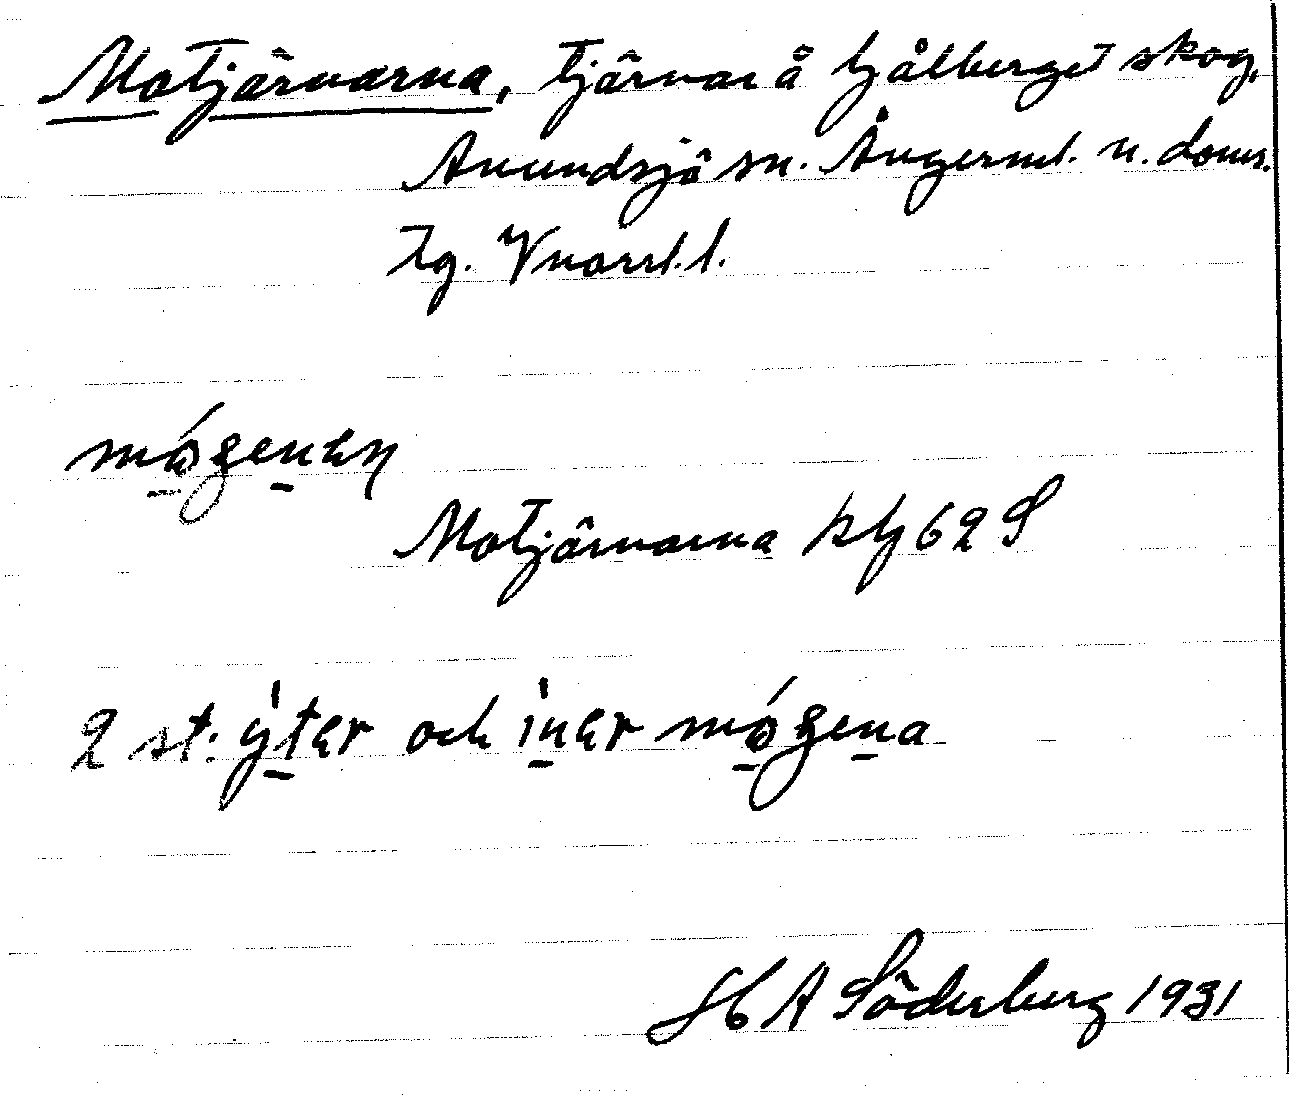 Motjärnarna, tjärnar å Kjålberget skog,
Anundsjö sn. Ångerml. n. doms.
Tg. Vnorrl. l.
mógenen
Motjärnarna kbl 62 S
2 st. ýter och íner mógena
H A Söderberg 1931